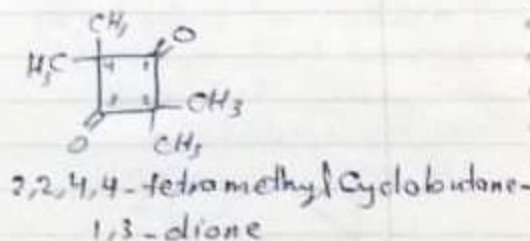 CH3
H3C
O
4
1
3
2
CH3
O
CH3
2,2,4,4-tetramethylCyclobutane-
1,3-dione